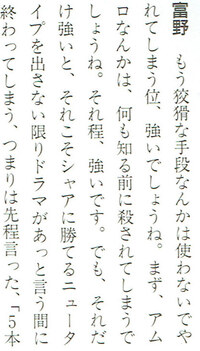 富野　もう狡猾な手段なんかは使わないでや
れてしまう位、強いでしょうね。まず、アム
ロなんかは、何も知る前に殺されてしまうで
しょうね。それ程、強いです。でも、それだ
け強いと、それこそシャアに勝てるニュータ
イプを出さない限りドラマがあっと言う間に
終わってしまう、つまりは先程言った、「５本